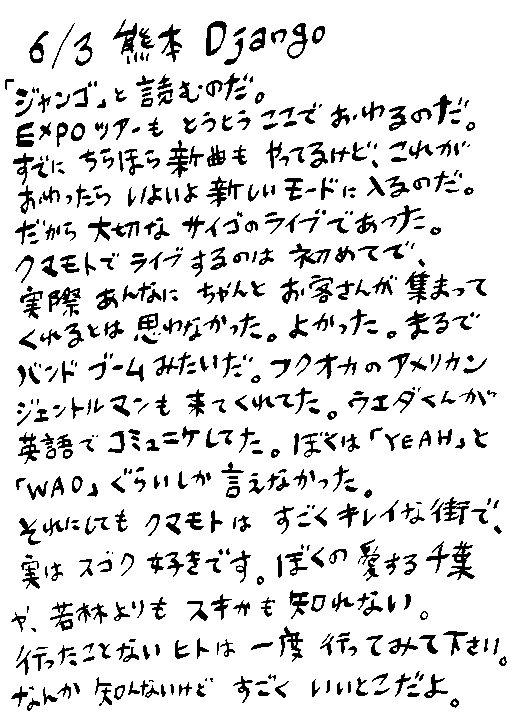 6/3 熊本 Django
「ジャンゴ」と読むのだ。
EXPOツアーも とうとうここで おわるのだ。
すでに ちらほら新曲も やってるけど、これが
おわったら いよいよ新しいモードに入るのだ。
だから大切な サイゴのライブであった。
クマモトで ライブするのは 初めてで、
実際 あんなに ちゃんと お客さんが 集まって
くれるとは 思わなかった。よかった。まるで
バンドブームみたいだ。フクオカのアメリカン
ジェントルマンも 来てくれてた。ウエダくんが
英語で コミュニケしてた。ぼくは「YEAH」と
「WAO」ぐらいしか 言えなかった。
それにしても クマモトは すごくキレイな街で、
実は スゴク 好きです。ぼくの愛する千葉
や、若林よりも スキかも 知れない。
行ったことないヒトは 一度 行ってみて下さい。
なんか 知んないけど すごく いいとこだよ。